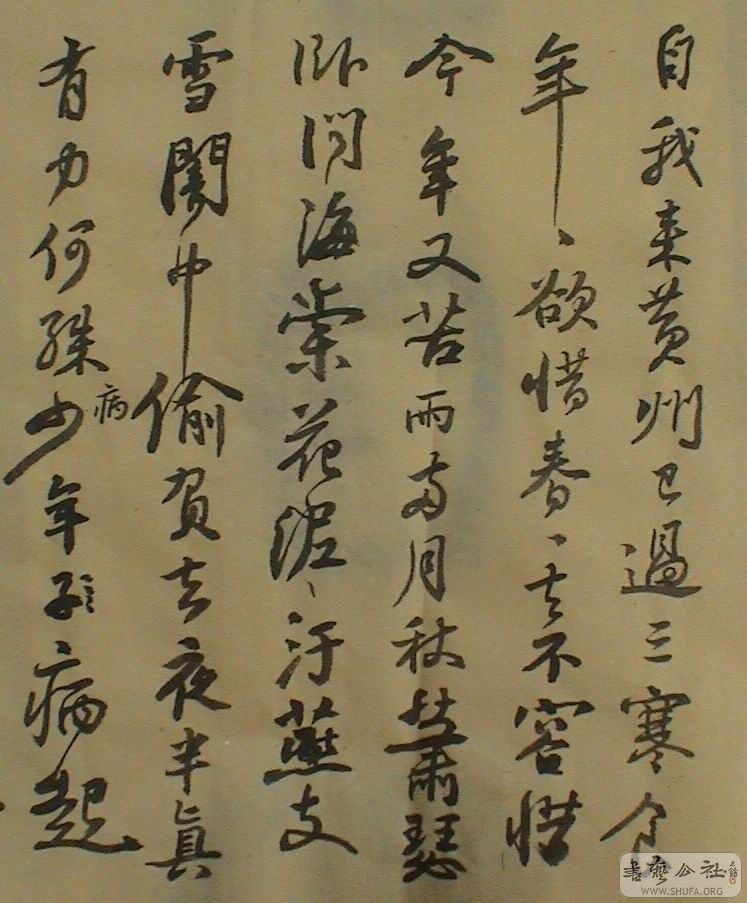 自我来黄州已過三寒食
年、欲惜春、去不容惜
今年又苦雨兩月秋蕭瑟
卧聞海棠花泥、汙燕支
雪闇中偷負去夜半眞
有力何殊少年子病起
病
書藝公社
WWW.SHUFA.ORG